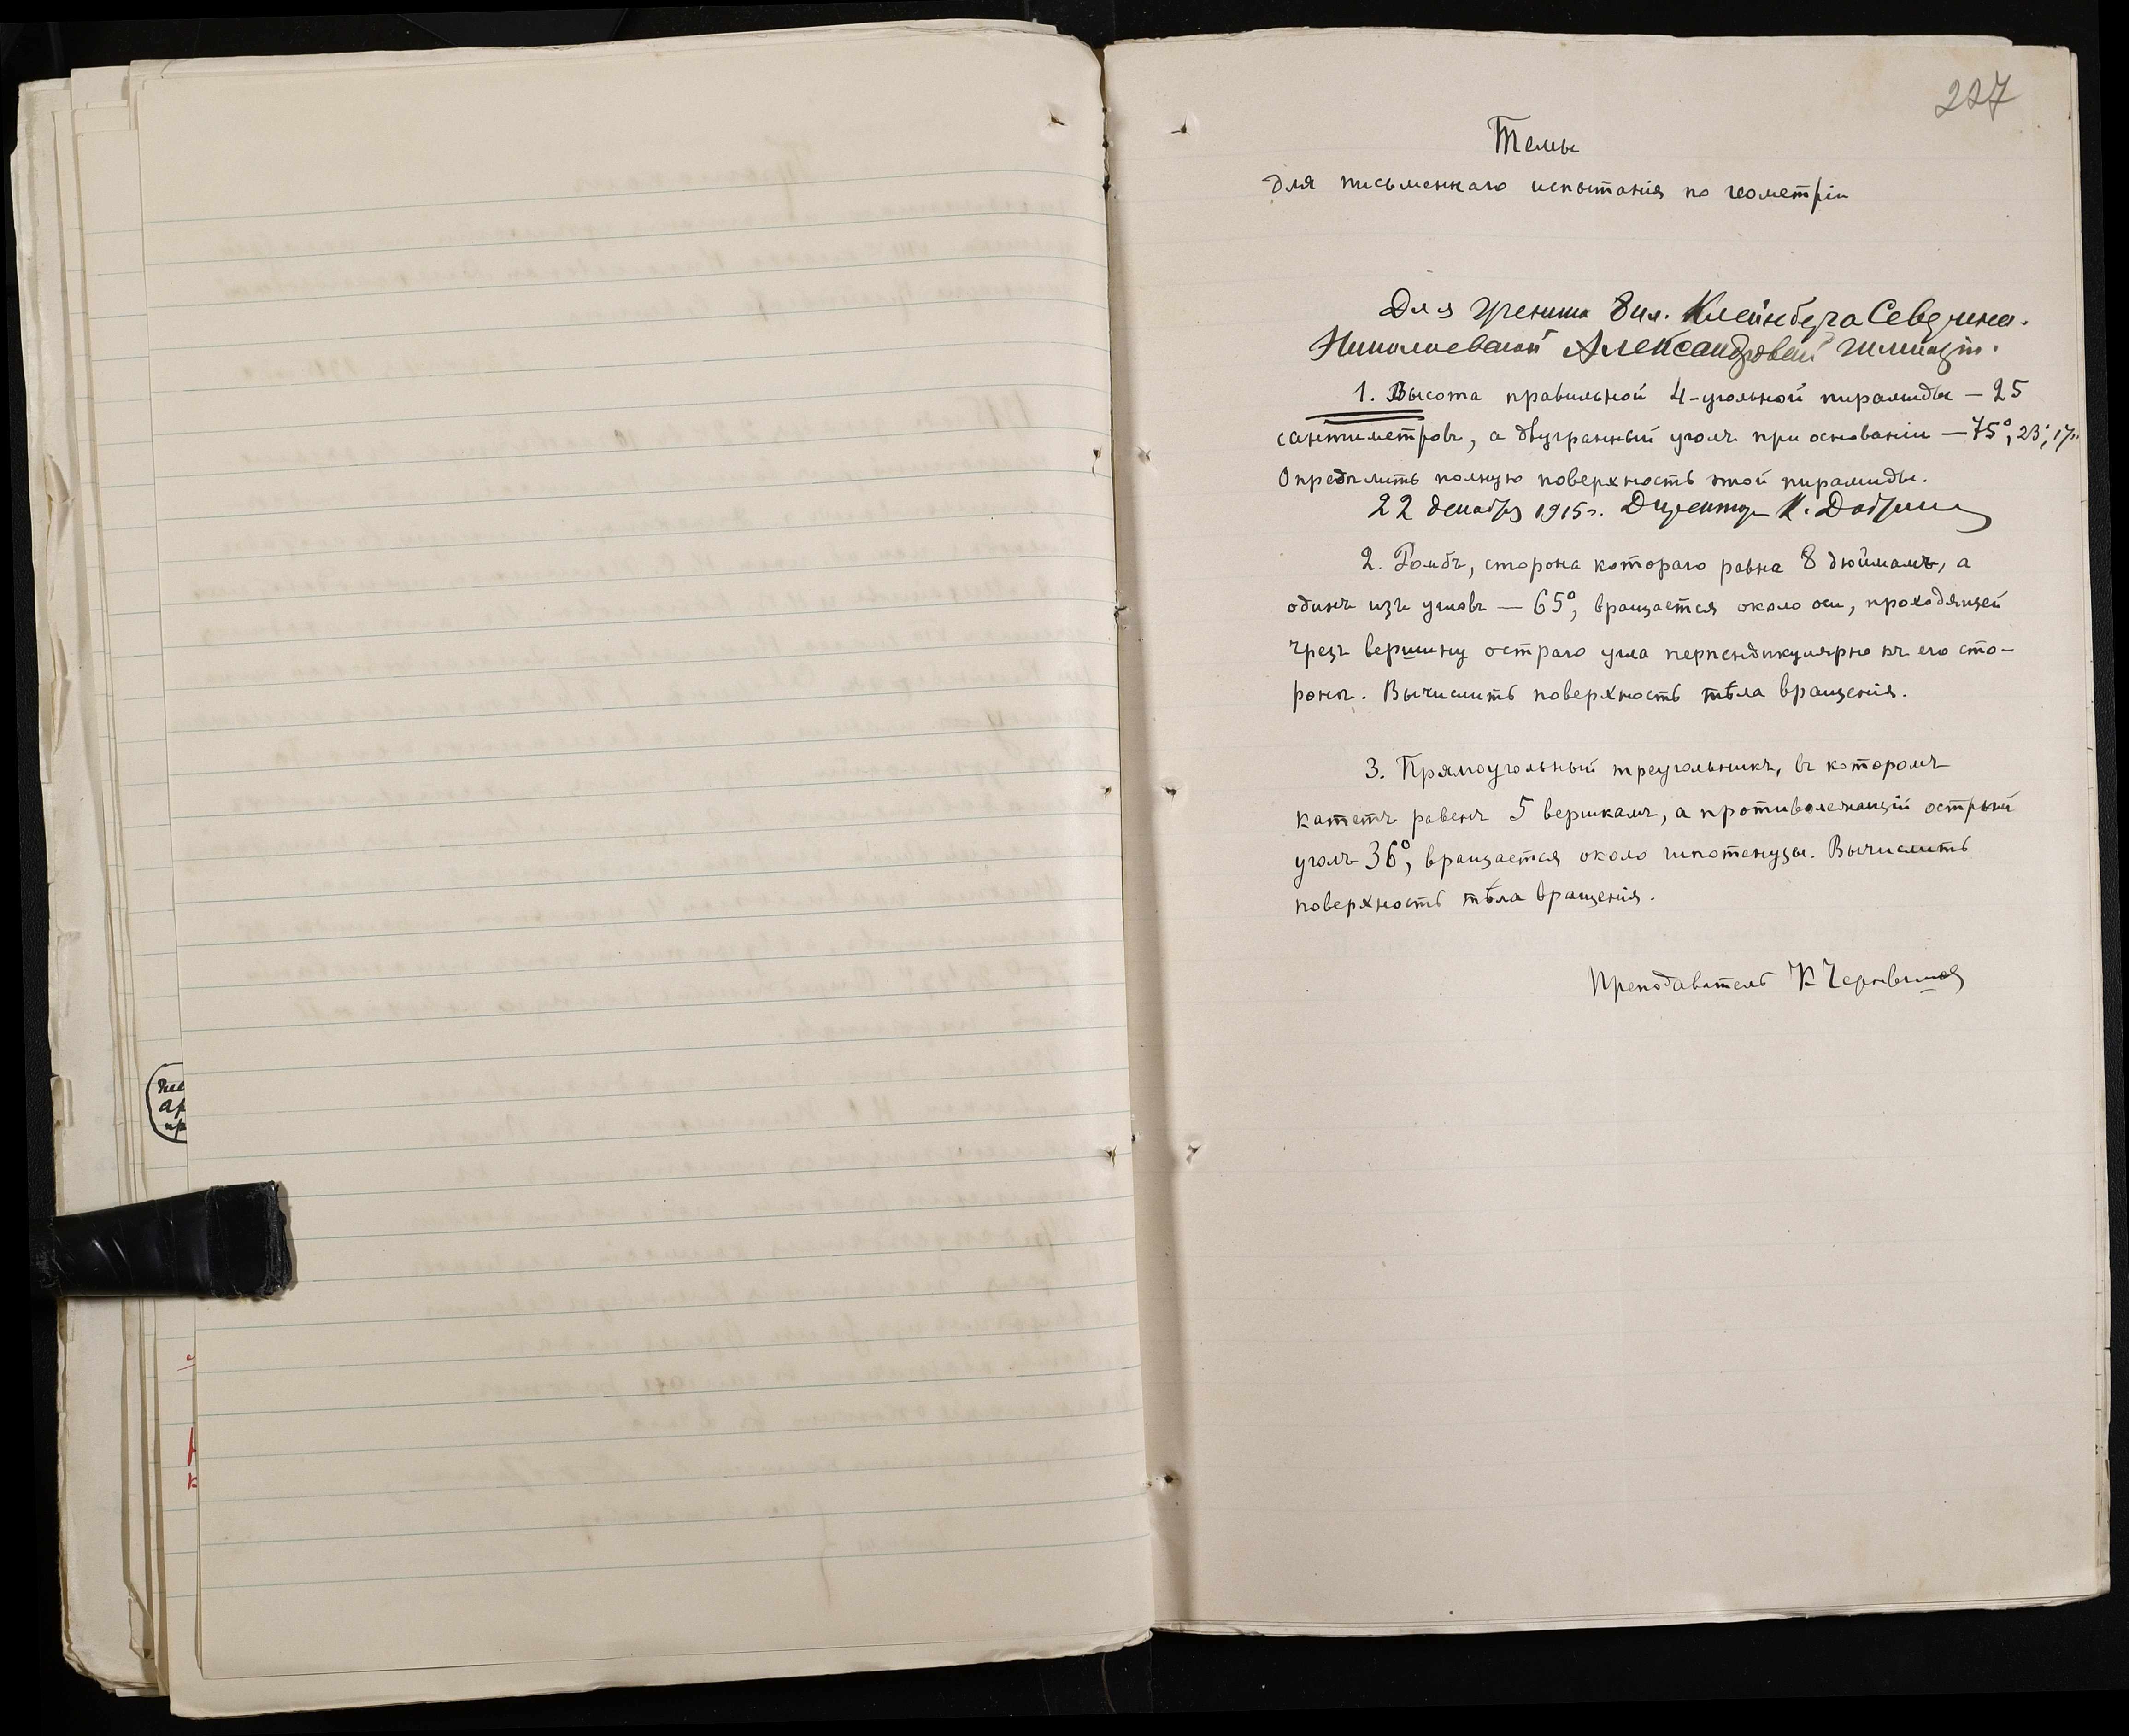 227
Темы
для письменнаго испытанія по геометріи
Для ученика 8 кл. Клейнберга Северина.
Николаевской Александровской гимназіи.
1. Высота правильной 4-угольной пирамиды — 25
сантиметровъ, а двугранный уголъ при основаніи — 75°, 23', 17"
Опредѣлить полную поверхность этой пирамиды.
22 декабря 1915 г. Директоръ К.
2. Ромбъ, сторона котораго равна 8 дюймамъ, а
одинъ изъ угловъ — 65°, вращается около оси, проходящей
чрезъ вершину остраго угла перпендикулярно къ его сто-
ронѣ. Вычислить поверхность тѣла вращенія.
3. Прямоугольный треугольникъ, въ которомъ
катетъ равенъ 5 вершкамъ, а противолежащій острый
уголъ 36°, вращается около гипотенузы. Вычислить
поверхность тѣла вращенія.
Преподаватель К